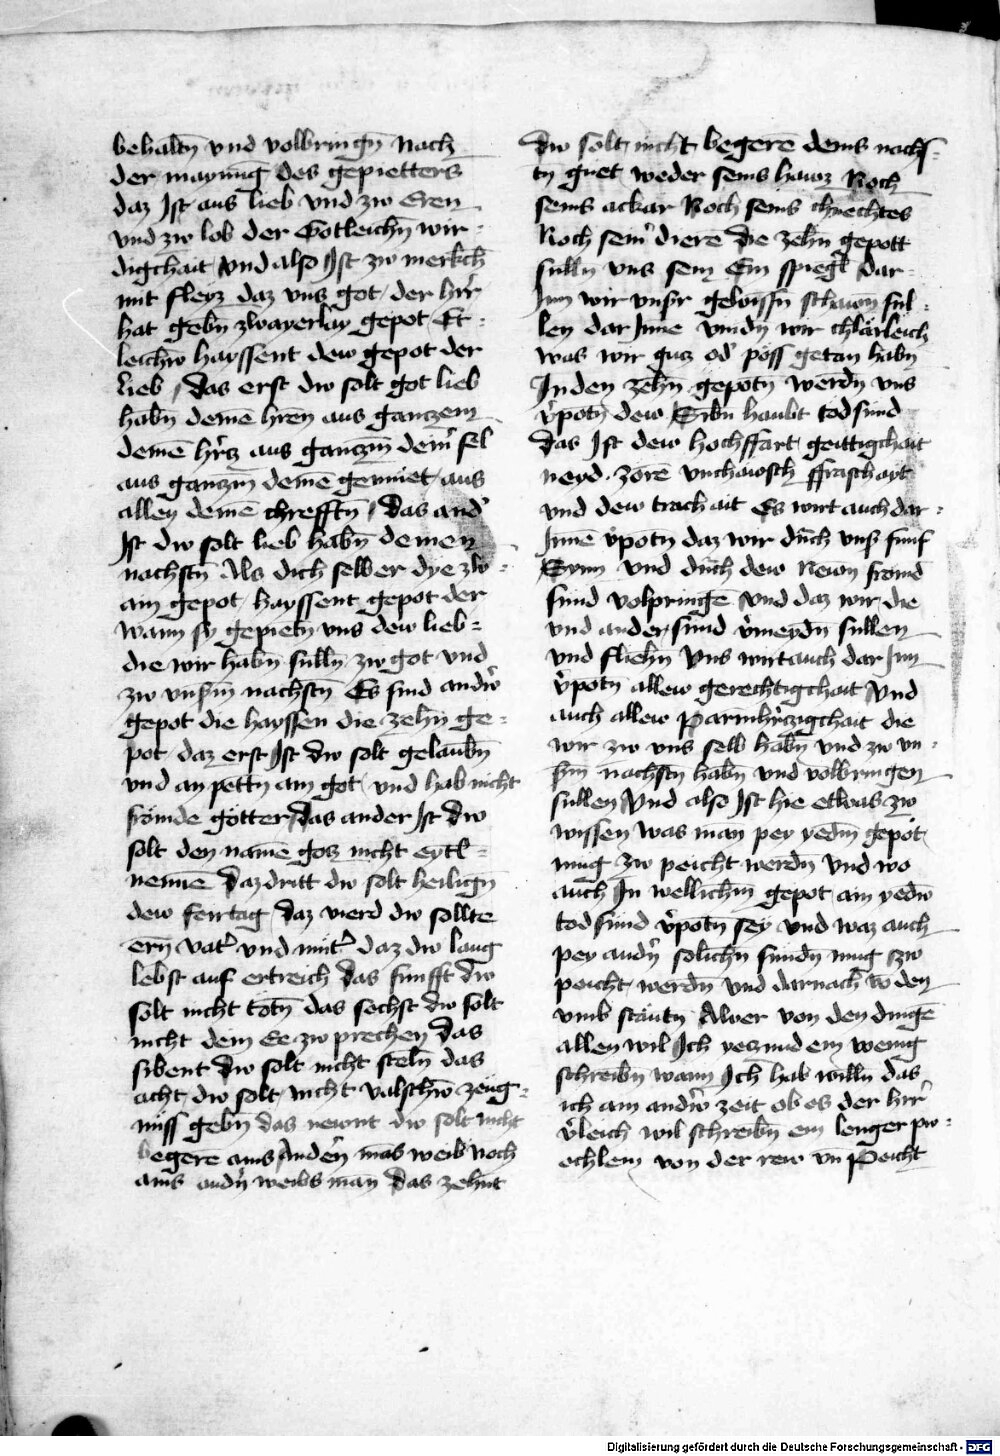 behaltn̄ vnd volbringn̄ nach
der maynūg des gepietters
daz Ist aus lieb vnd zw Eren
vnd zw lob der Gotleichn̄ wir=
digchait vnd also Ist zw merkch̄
mit fleyz daz vns got der hr̄r
hat gebn̄ zwayerlay gepot Et=
leichew hayssent dew gepot der
lieb / das erst dw solt got lieb
habn̄ deinē hren aus ganczem
deinē hr̄cz aus ganczm̄ dein̄ sel
aus ganczm̄ deinē gemuet aus
allen deinē chrefftn̄ / das and̄
Ist dw solt lieb habn̄ deinen
nachstn̄ Als dich selber dye zw=
ain gepot hayssent gepot der
wann sy gepietn̄ vns dew lieb=
die wir habn̄ sulln̄ zw got vnd
zw vnsm̄ nachstn̄ Es sind andr̄
gepot die hayssen die zehn̄ ge=
pot daz erst Ist dw solt gelaubn̄
vnd an pettn an got vnd hab nicht
frömde götter das ander Ist dw
solt den namē gotz nicht eytl=
nennē daz dritt dw solt heilign̄
dew feirtag daz vierd dw sollte
ern̄ vat̄ vnd mut̄ daz dw lang
lebst auf ertreich das funfft dw
solt nicht tötn̄ das sechst dw solt
nicht dein Ee zw prechen das
sibent dw solt nicht steln̄ das
acht dw solt nicht valschew zeug=
nüss gebn̄ das newnt dw solt nicht
begerē ains Anden̄ mās weib Noch
ains andn̄ weibs man̄ das zehint
dw solt nicht begerē deins nachs=
tn̄ guet weder seins hawz Noch
seins ackar Noch seins chnechtes
Noch sein̄ dierē die zehn̄ gepott
sulln̄ vns sein Ein spiegl̄ dar=
Inn wir vnsir gewissn̄ schawn sul=
len dar Inne vindn̄ wir chlärleich
was wir guz od̄ pöss getan habn̄
In den zehn̄ gepotn̄ werdn̄ vns
v̄potn̄ dew Sibn̄ haubt tod sünd
das Ist dew hochffart geittigchait
neyd zorē vnchawsch ffraschayt
vnd dew trachait Es wirt auch dar=
Innē v̄potn̄ daz wir durch vnß funf
Synn vnd durch dew Newn frömd
sünd volpringē vnd daz wir die
vnd ander sünd v̄meydn̄ sullen
vnd fliehn̄ Vns wirt auch dar Inn
v̄potn̄ allew gerechtigchait Vnd
auch allew Parmhr̄czigchait die
wir zw vns selb habn̄ vnd zw vn=
sm̄ nachstn̄ habn̄ vnd volbringen
sullen Vnd also Ist hie etwas zw
wissen was man pey yedm̄ gepot
mug zw peicht werdn̄ vnd wo
auch In wellichm̄ gepot ain yedw
tod sünd v̄potn̄ sey vnd waz auch
pey andn̄ solichn̄ sündn̄ mug zw
peicht werdn̄ vnd darnach vō den
vmb stäntn̄ Aber von den dingē
allen wil Ich yeczund ein wenig
schreibn̄ wann Ich hab willn̄ das
ich ain andrw̄ zeit ob es der hr̄r
v̄leich wil schreibn̄ ein lenger pw=
echlein von der rew vn̄ Peicht
Digitalisierung gefördert durch die Deutsche Forschungsgemeinschaft - DFG